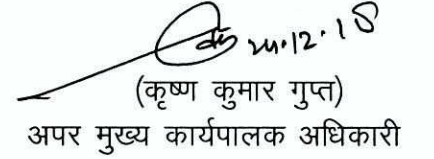 24.12.18
(कृष्ण कुमार गुप्त)
अपर मुख्य कार्यपालक अधिकारी